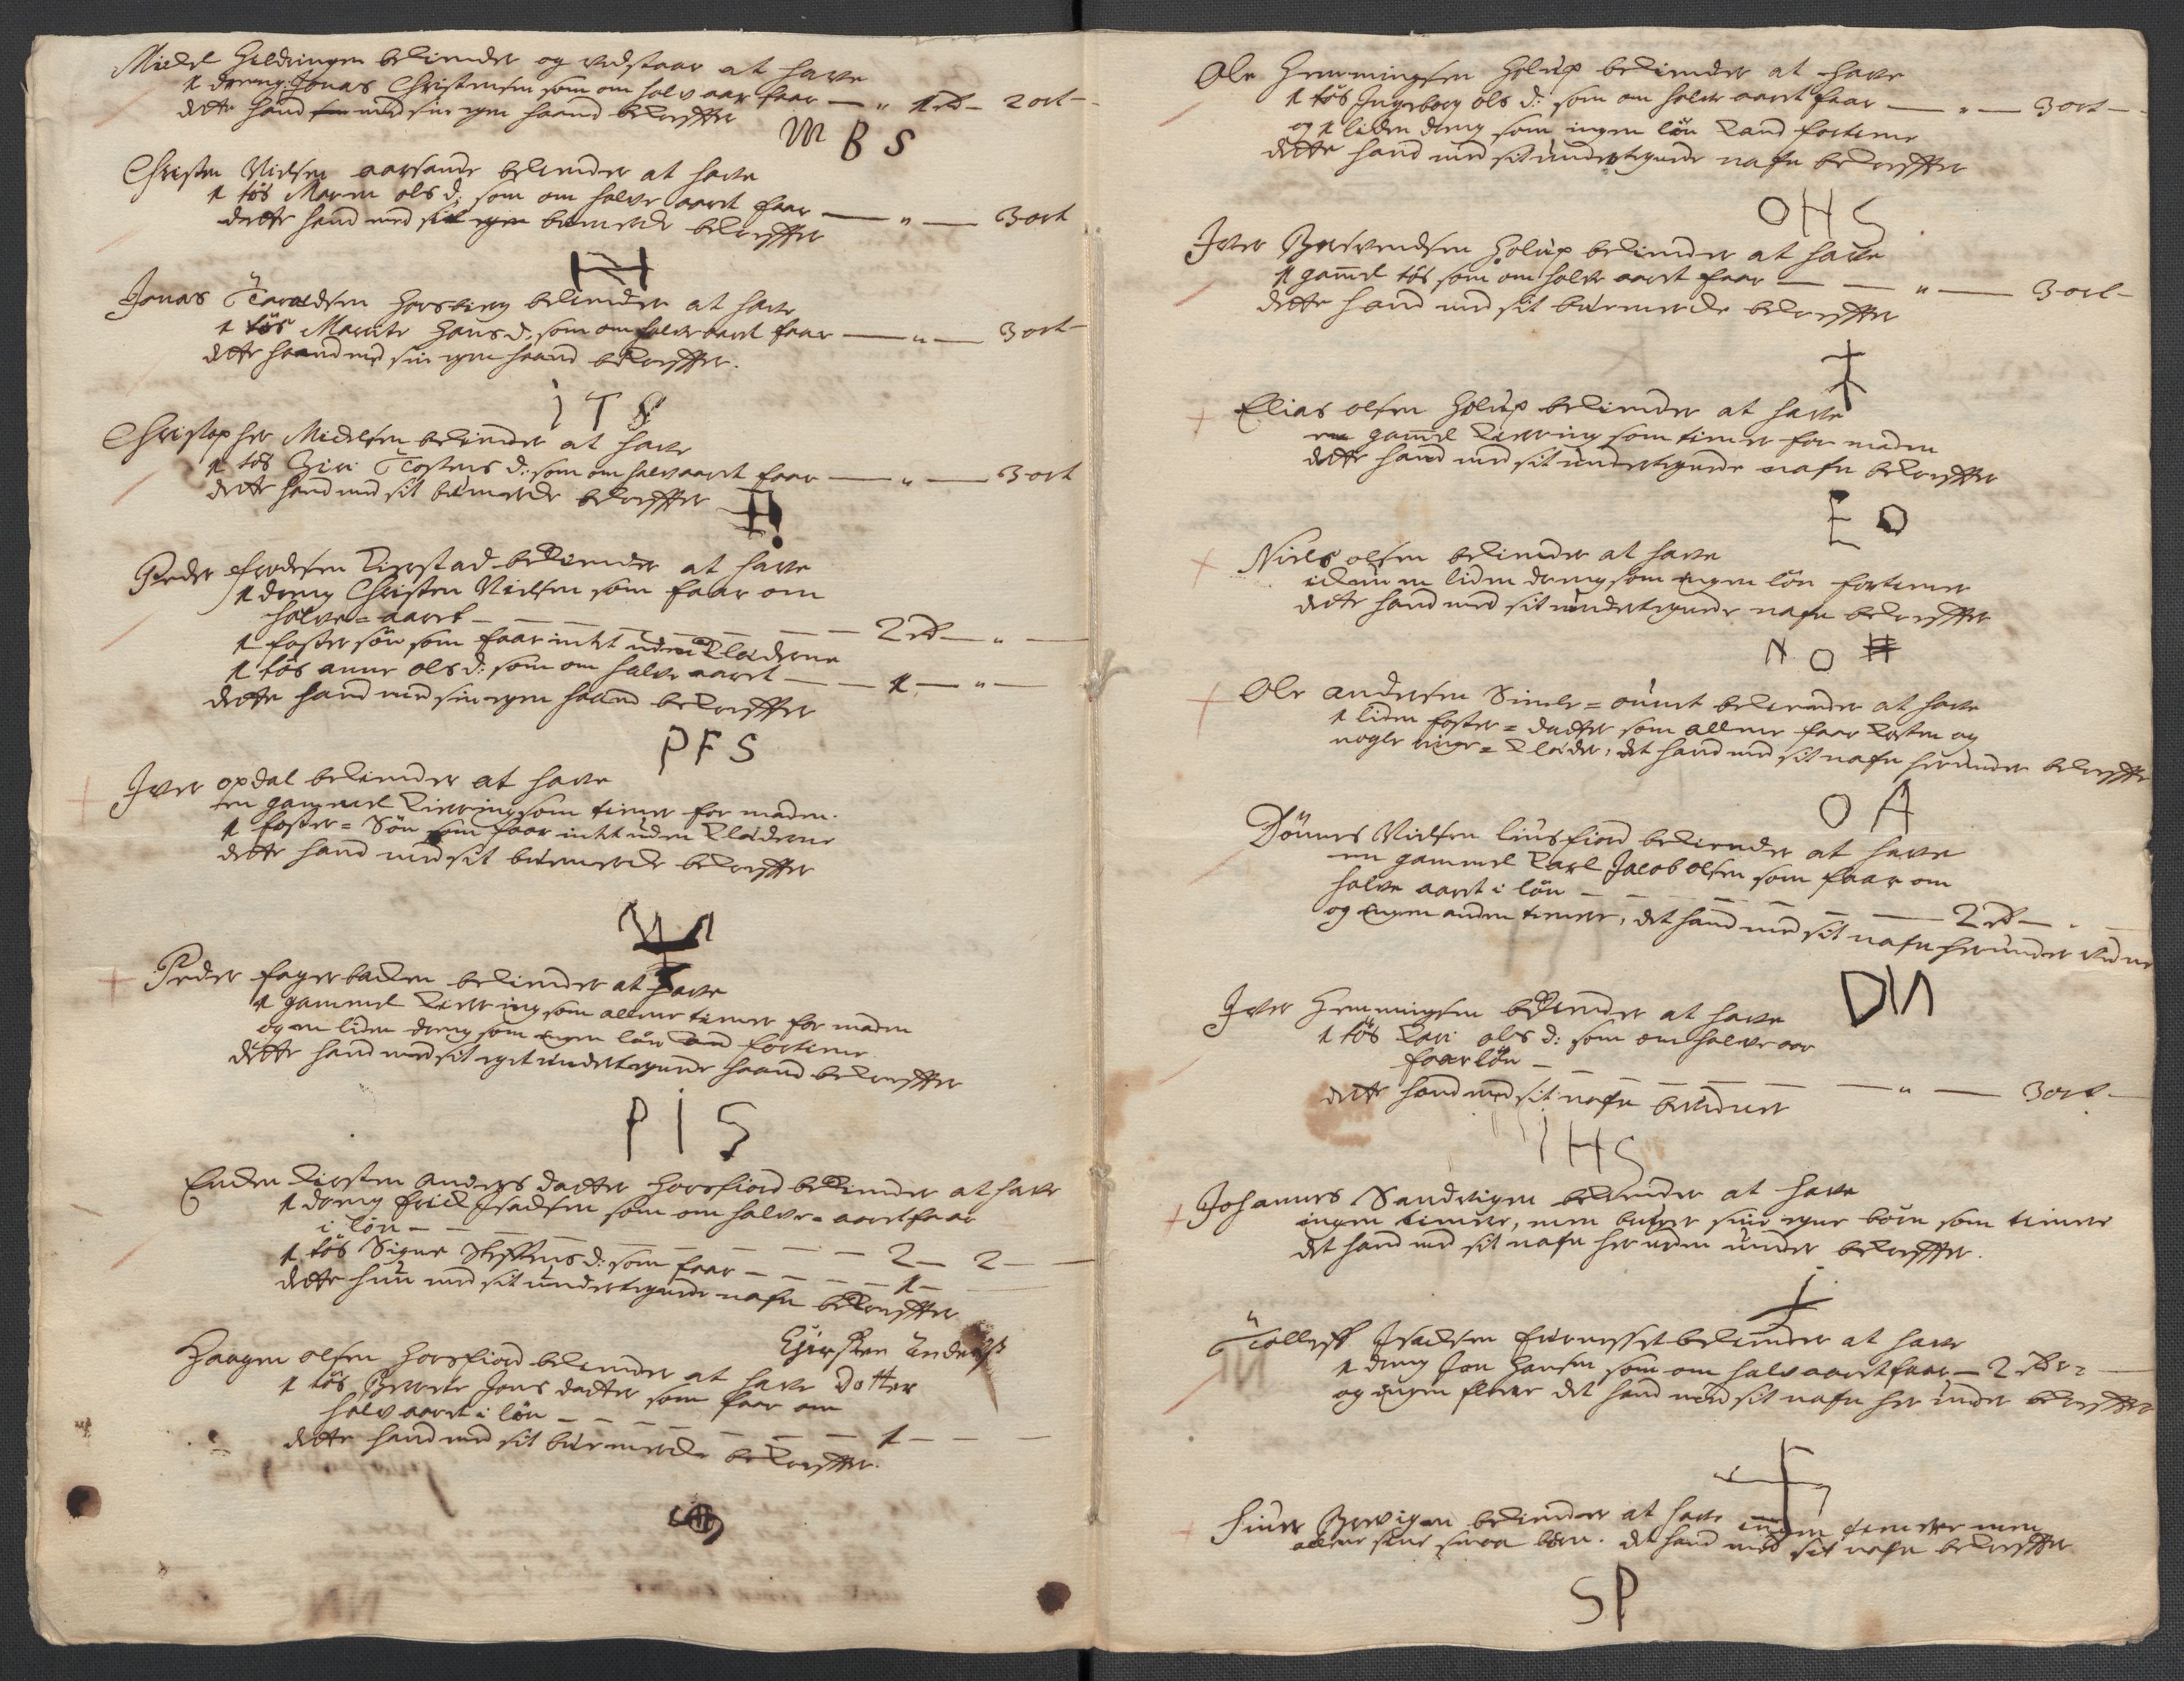 Mickel Hildringen bekiender og vedstaar at have
1 dreng Jonas Christensen som om halv aar faar — " 1 rd — 2 ort —
dette hand med sin egen haand bekreffter
M B S
Christen Nielsen aarsande bekiender at have
1 tøs Maren ols d: som om halve aaret faar — " — 3 ort
dette hand med sit egen bumercke bekreffter
Jonas Taraldsen Horsberg bekiender at have
1 tøs Marite Hans d. som om halve aaret faar — " — 3 ort
dette haand med sin egen haand bekreffter.
I T S
Christopher Mickelsen bekiender at have
1 tøs Siri Tostens d: som om halv aaret faar — " — 3 ort
dette hand med sit bumercke bekreffter
H
Peder fredesen Kierstad bekiender at have
1 dreng Christen Nielsen som faar om
halve = aaret — 2 rd — " —
1 foster søn som faar intet uden Klæderne
1 tøs anne ols d: som om halve aaret — 1 — " —
dette hand med sin egen haand bekreffter
P F S
Iver opdal bekiender at have
en gammel Kierring som tiener for maden.
1 foster = Søn som faar intet uden Klæderne
dette hand med sit bumercke bekreffter
Peder fagerbacken bekiender at have
1 gammel Kierring som allene tiener for maden
og en liden dreng som ingen løn kand fortiene
dette hand med sit eget undertegnede haand bekreffter
P I S
Encken Kirsten Anders datter Horsfiord bekiender at have
1 dreng Frick Isacksen som om halve = aaret faar
i løn — 2 — 2 —
1 tøs Signe Steffens d: som faar — 1 —
dette hun med sit undertegnede nafn bekreffter
Kjirsten Anders
Dotter
Haagen olsen Horsfiord bekiender at have
1 tøs Berete Jens datter som faar om
halv aaret i løn — 1 —
dette hand med sit bumercke bekreffter.
Ole Hemmingsen Holup bekiender at have
1 tøs Ingeborg ols d: som om halve aaret faar — " — 3 ort —
og 1 liden dreng som ingen løn kand fortiene
dette hand med sit undertegnede nafn bekreffter
O H S
Iver Bersvendsen Holup bekiender at have
1 gam̄el tøs som om halve aaret faar — " — 3 ort —
dette hand med sit bumercke bekreffter
Elias olsen Holup bekiender at have
en gam̄el Kierring som tiener for maden
dette hand med sit undertegnede nafn bekreffter
E O
Niels olsen bekiender at have
ickun en liden dreng som ingen løn fortiener
dette hand med sit undertegnede nafn bekreffter
N O
Ole andersen Simle = bekiender at have
1 liden foster = datter som allene faar Kosten og
nogle ringe = Klæder, det hand med sit nafn herunder bekreffter
O A
Dønnes Nielsen liusfiord bekiender at have
en gammel Karl Jacob olsen som faar om
halve aaret i løn — 2 rd —
og ingen anden tiener, det hand med sit nafn herunder
D N
Iver Hemmingsen bekiender at have
1 tøs Kari ols d: som om halve aar
faar løn — " — 3 ort —
dette hand med sit nafn bevidner
I H S
Johannes Sandvigen bekiender at have
ingen tiener, men bruger sine egne børn som tiener
det hand med sit nafn her neden under bekreffter.
Tolleff Isacksen bekiender at have
1 dreng Jon Hansen som om halv aaret faar — 2 rdr =
og ingen flere det hand med sit nafn her under bekreffter
Siver Brevigen bekiender at have ingen tienere men
allene sine smaa børn. det hand med sit nafn bekreffter
S P